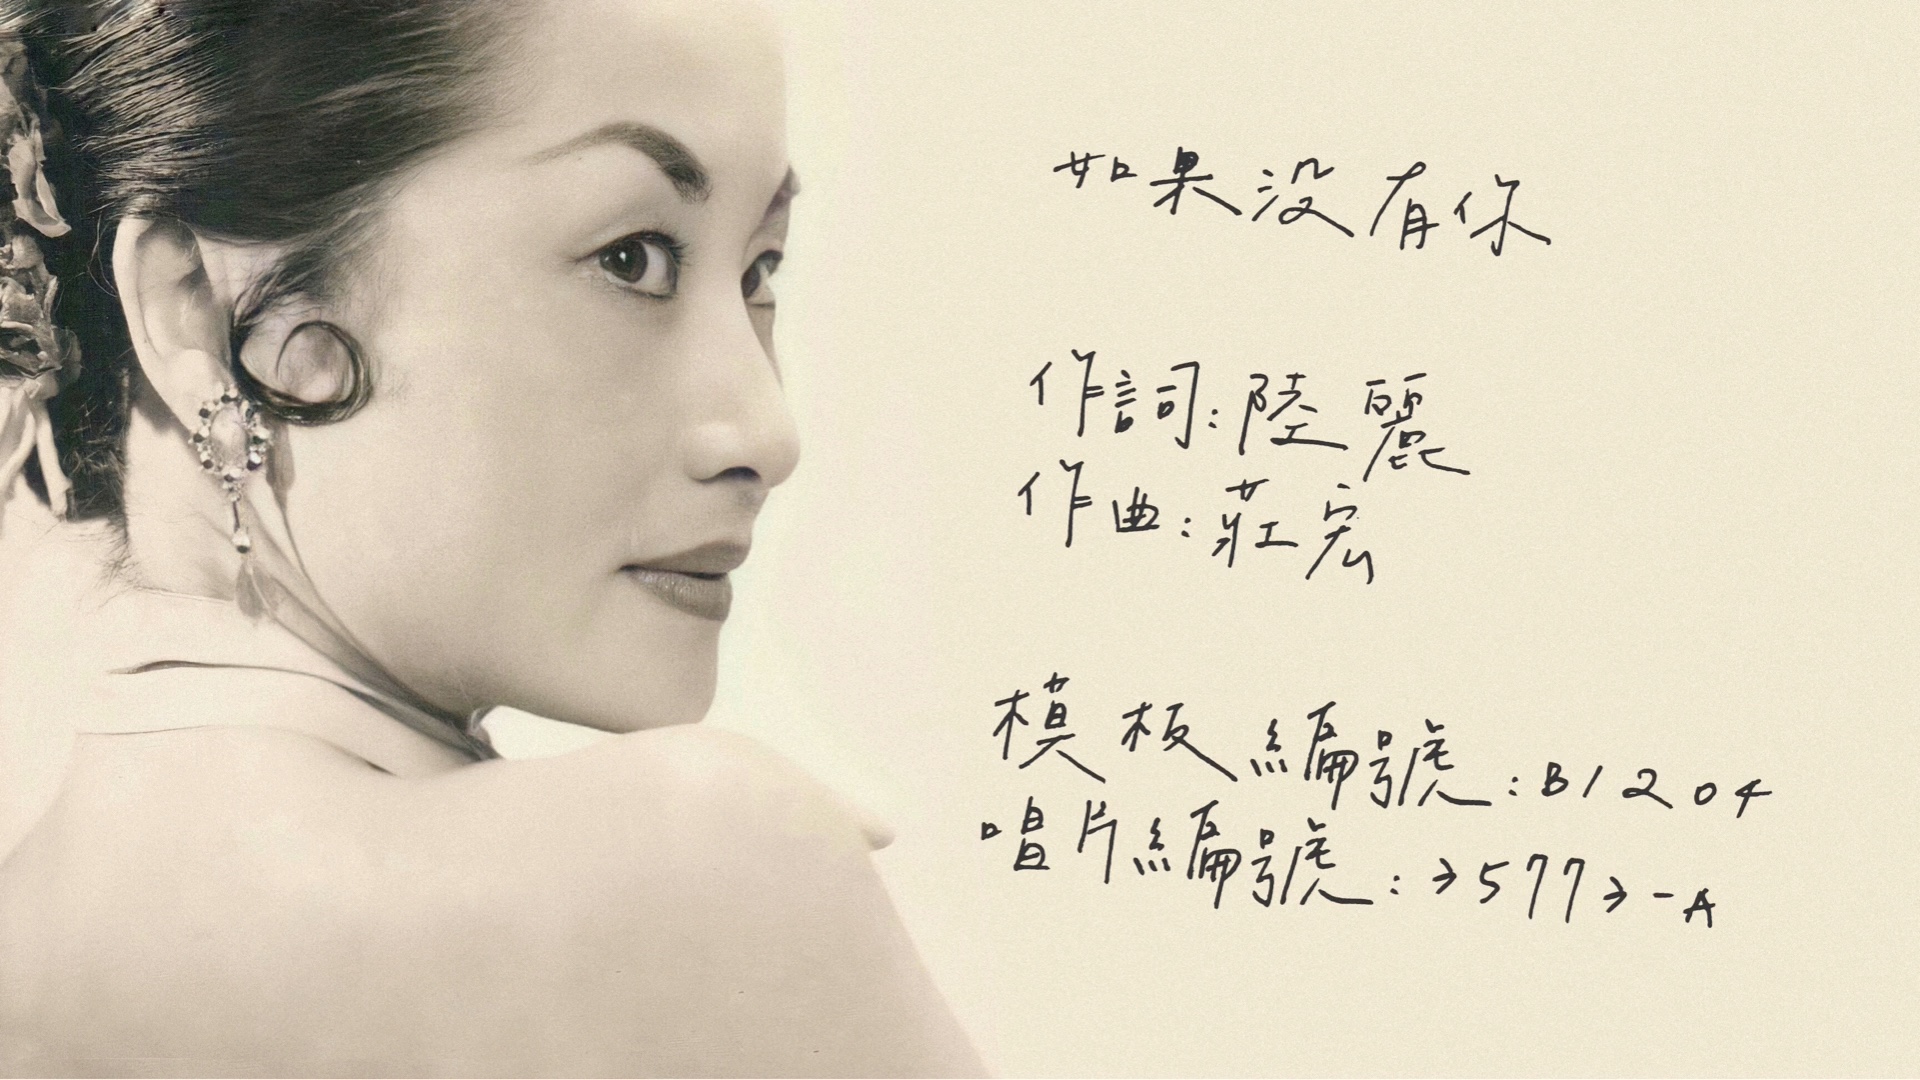 如果沒有你
作詞:陸麗
作曲:莊宏
模板編號:B1204
唱片編號:35773-A